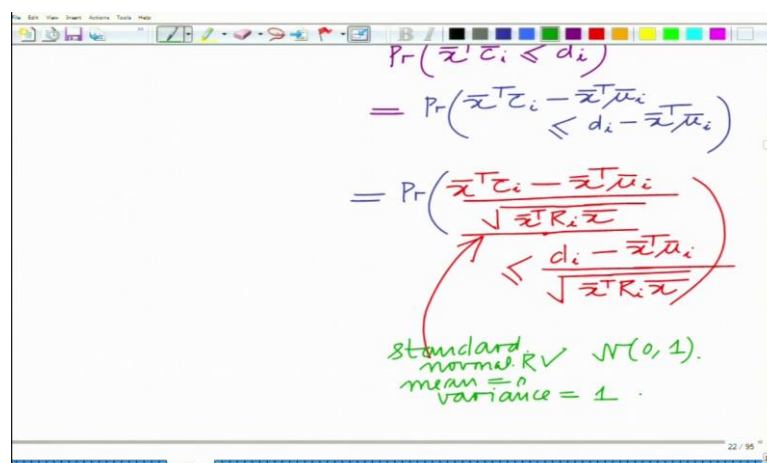 File Edit View Insert Actions Tools Help
B I
Pr(x̄ᵀ c̄ᵢ ≤ dᵢ)
= Pr(x̄ᵀc̄ᵢ − x̄ᵀμ̄ᵢ
≤ dᵢ − x̄ᵀμ̄ᵢ)
= Pr(x̄ᵀc̄ᵢ − x̄ᵀμ̄ᵢ
√x̄ᵀRᵢx̄
≤ dᵢ − x̄ᵀμ̄ᵢ
√x̄ᵀRᵢx̄)
standard N(0, 1).
normal RV
mean = 0
variance = 1 .
22 / 95